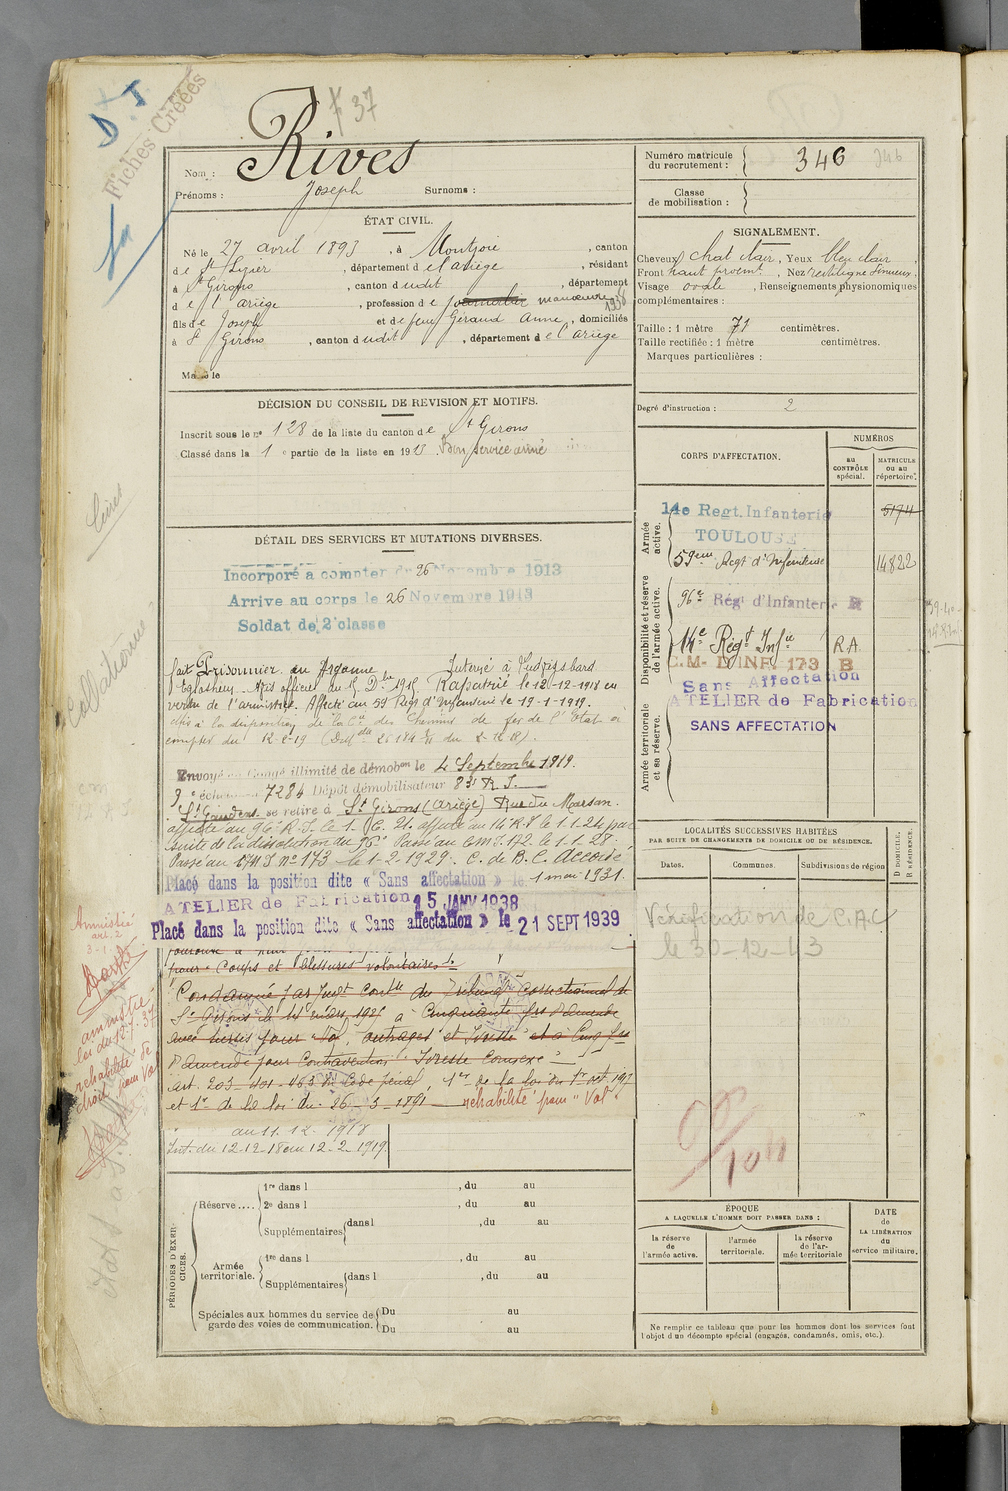 F 37
D. I.
Fiches Créées
Nom : Rives
Prénoms : Joseph Surnoms :
ÉTAT CIVIL.
Né le 27 avril 1893, à Montjoie, canton
de St Lizier, département de l'ariège, résidant
à St Girons, canton dudit, département
de l'ariège, profession de manœuvre 1938
fils de Joseph et de feue Géraud Anne, domiciliés
à St Girons, canton dudit, département de l'ariège
Ma le
DÉCISION DU CONSEIL DE REVISION ET MOTIFS.
Inscrit sous le nº 128 de la liste du canton de St Girons
Classé dans la 1e partie de la liste en 1913 Bon service armé
DÉTAIL DES SERVICES ET MUTATIONS DIVERSES.
Incorporé à compter du 26 Novembre 1913
Arrive au corps le 26 Novembre 1913
Soldat de 2e classe
fait Prisonnier en Argonne Interné à Ludwigsbard
d'Eglosheim. Avis officiel du 15 Dbre 1915. Rapatrié le 12-12-1918 en
vertu de l'armistice. Affecté au 59 Régt d'Infanterie le 19-1-1919.
mis à la disposition de la Cie des Chemins de fer de l'Etat à
compter du 12-2-19
Envoyé en Congé illimité de démobon le 4 Septembre 1919.
9e échelon n° 7284 Dépôt démobilisateur 83e R.I.
St Gaudens se retire à St Girons (Ariège) Rue du Marsan.
affecté au 96e R.I. le 1. 21. affecté au 14e R.I. le 1.1.24 par
suite de la dissolution du 96e Passé au CMI.172. le 1.1.28.
Passé au CM I nº 173 le 1-2-1929. C. de B.C. Accordé
Placé dans la position dite « Sans affectation » le 1 mai 1931.
ATELIER de Fabrication 15 JANV 1938
Placé dans la position dite « Sans affectation » le 21 SEPT 1939
pour Coups et Blessures volontaires
Condamné par Jugt Contre du Tribunal Correctionnel de
St Girons le 14 mars 1921 à Cinquante frs d'amende
avec sursis pour Vol, outrages et Ivresse et à Cinq frs
d'amende pour Contravention Ivresse Connexe
art. 203 - 401 - 463 du Code pénal, 1er de la loi du 1er oct. 1917
et 1er de la loi du 26-3-1891 réhabilité pour "Vol".
au 11.12.1918
Int. du 12-12-18 au 12-2-1919.
PÉRIODES D'EXERCICES.
Réserve....
1re dans l , du au
2e dans l , du au
Supplémentaires dans l , du au
Armée territoriale.
1re dans l , du au
Supplémentaires dans l , du au
Spéciales aux hommes du service de garde des voies de communication.
Du au
Du au
Collationné
Amnistié
art. 2
3-1-
amnistié
loi du 12-7-37
réhabilité de
droit pour Vol
Numéro matricule du recrutement : 346 346
Classe de mobilisation :
SIGNALEMENT.
Cheveux chat clair, Yeux bleu clair
Front haut proémt., Nez rectiligne sinueux,
Visage ovale, Renseignements physionomiques
complémentaires :
Taille : 1 mètre 71 centimètres.
Taille rectifiée : 1 mètre centimètres.
Marques particulières :
Degré d'instruction : 2
CORPS D'AFFECTATION.
NUMÉROS
au CONTRÔLE spécial.
MATRICULE ou au répertoire.
Armée active.
14e Regt. Infanterie 5174
TOULOUSE
59eme Régt d'Infanterie 14822
Disponibilité et réserve de l'armée active.
96e Régt d'Infanterie
14e Régt Infie R.A.
C.M- D'INF. 173 B
Sans Affectation
ATELIER de Fabrication
SANS AFFECTATION
Armée territoriale et sa réserve.
LOCALITÉS SUCCESSIVES HABITÉES
PAR SUITE DE CHANGEMENTS DE DOMICILE OU DE RÉSIDENCE.
Dates. Communes. Subdivisions de région
D DOMICILE.
R RÉSIDENCE.
Vérification de C.A.C
le 30-12-43
ÉPOQUE
A LAQUELLE L'HOMME DOIT PASSER DANS :
DATE DE LA LIBÉRATION du service militaire.
la réserve de l'armée active.
l'armée territoriale.
la réserve de l'armée territoriale
Ne remplir ce tableau que pour les hommes dont les services font
l'objet d'un décompte spécial (engagés, condamnés, omis, etc.).